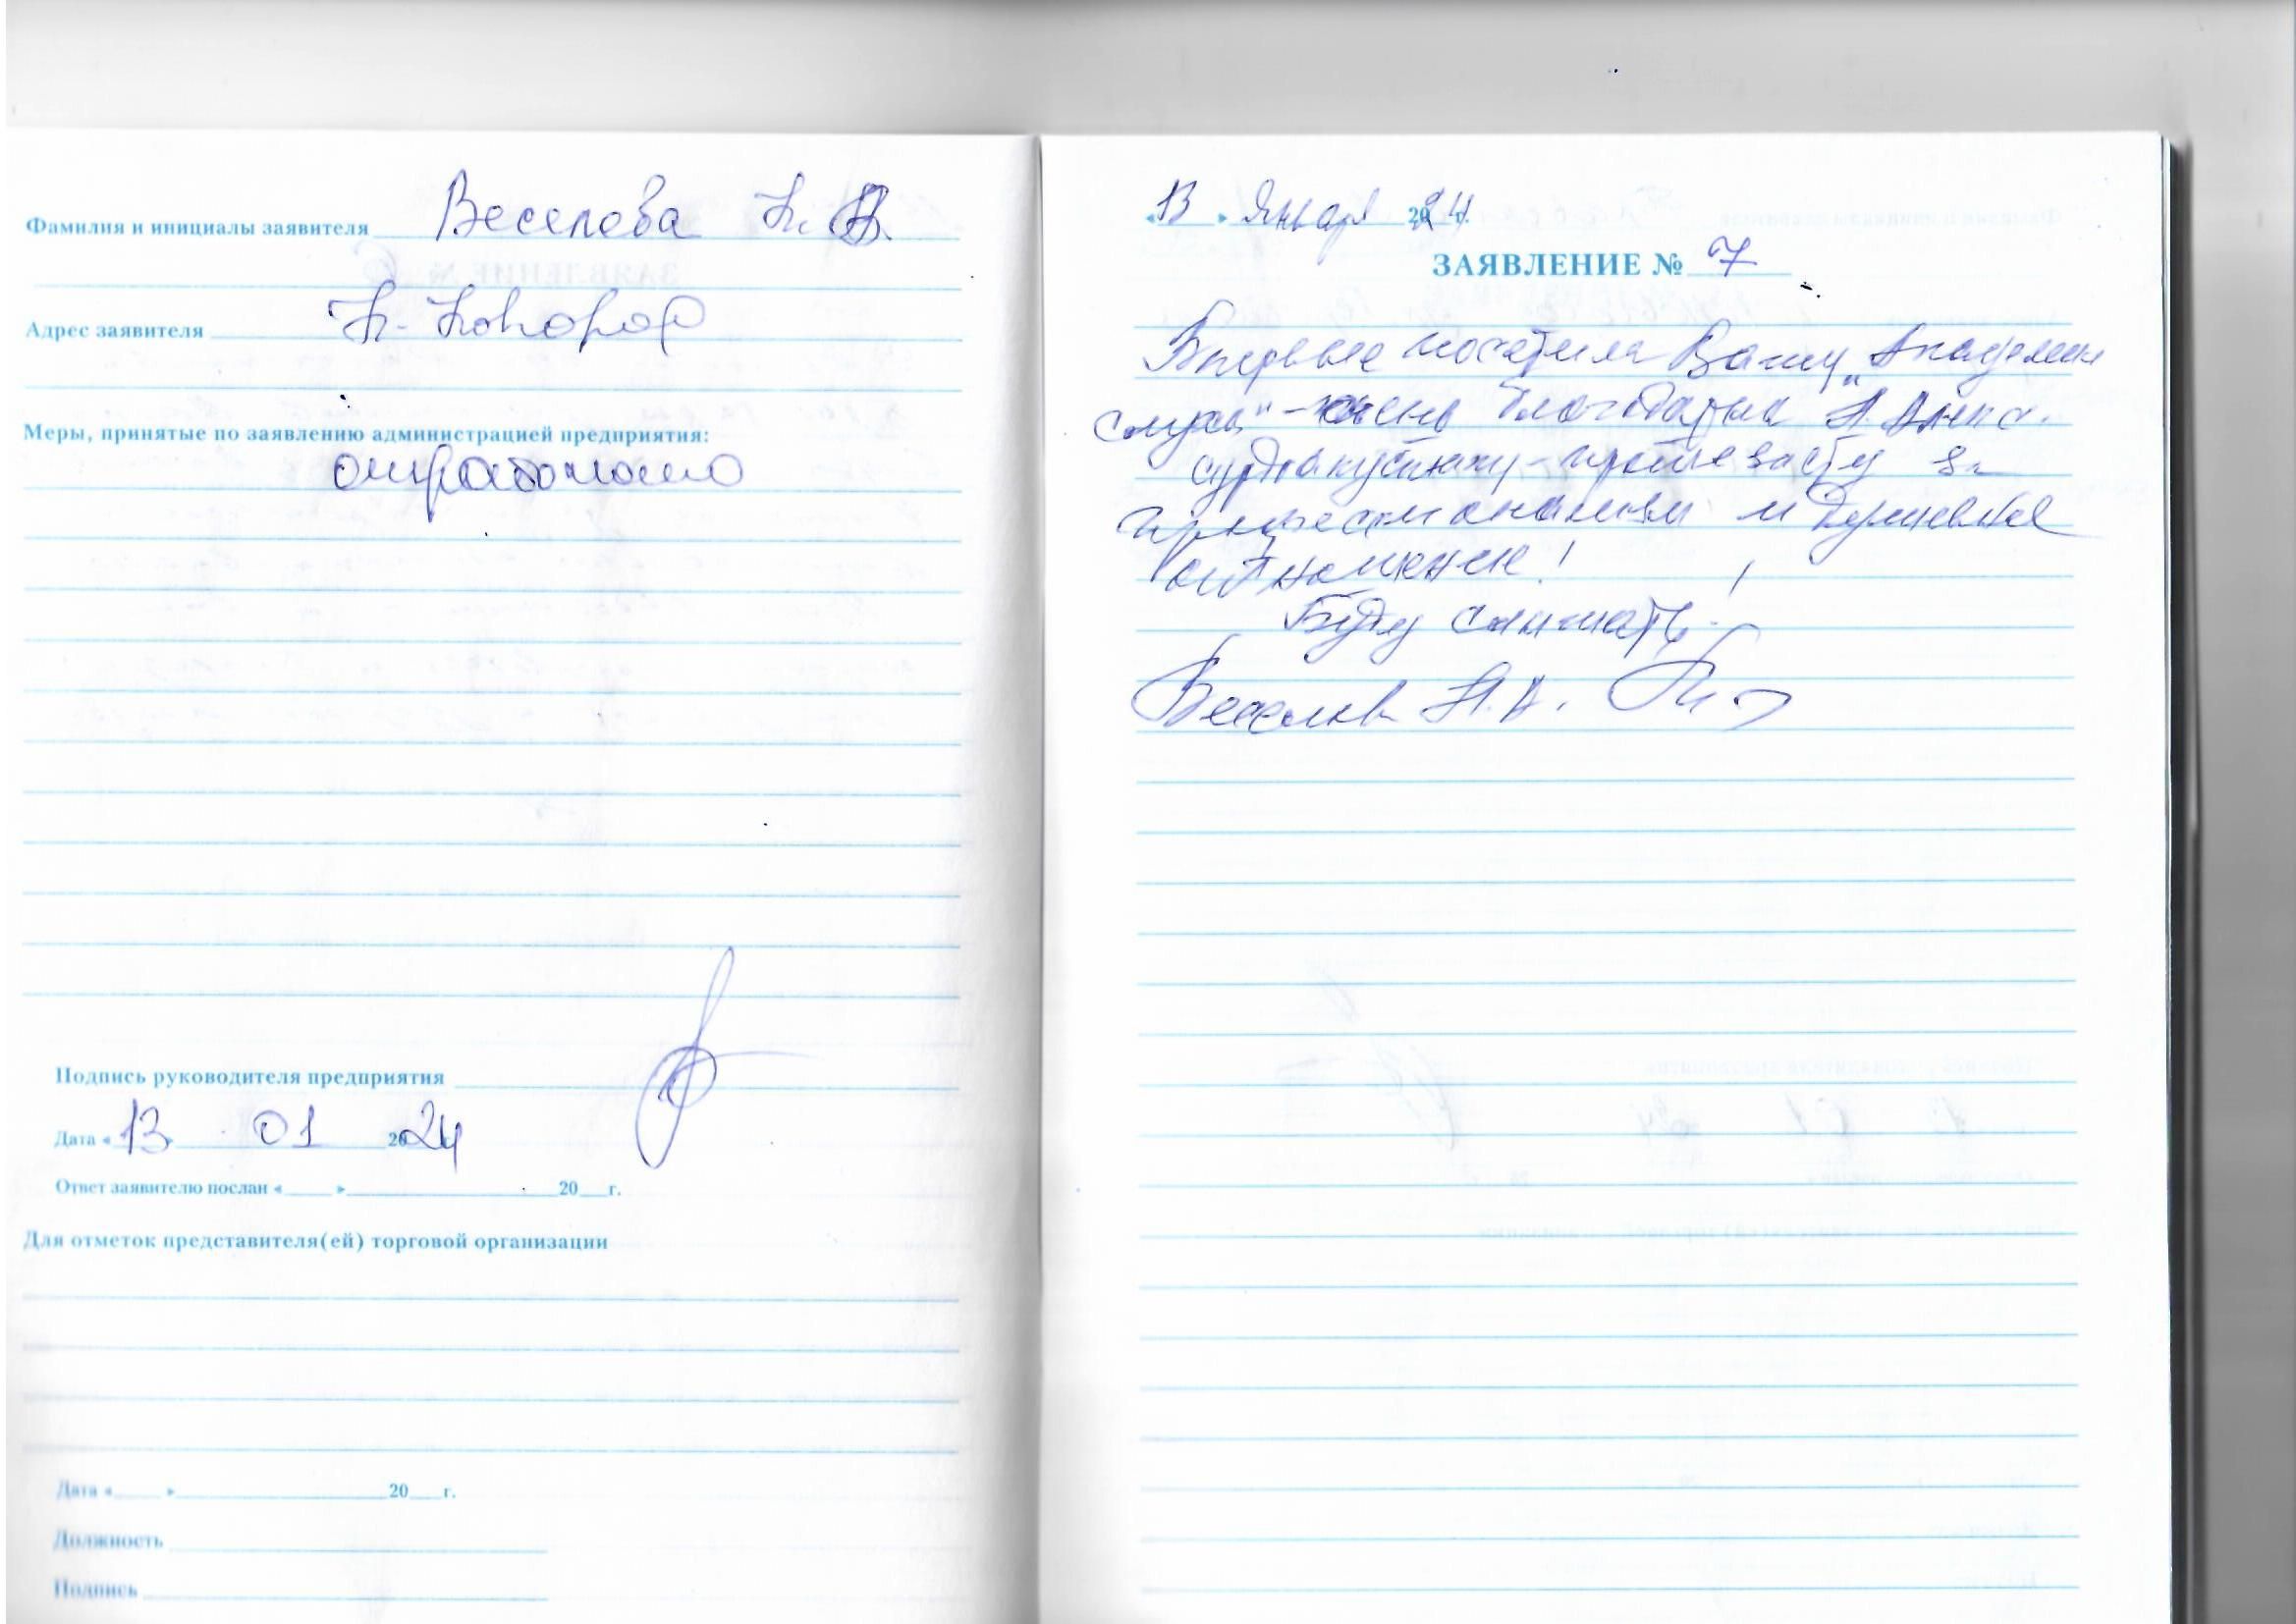 Фамилия и инициалы заявителя Веселова Н. В.
Адрес заявителя Н-Новгород
Меры, принятые по заявлению администрацией предприятия:
отработано
Подпись руководителя предприятия
Дата «13» 01 2024
Ответ заявителю послан «___» 20__г.
Для отметок представителя(ей) торговой организации
Дата «___» 20__г.
Должность
Подпись
«13» Января 2024 г.
ЗАЯВЛЕНИЕ № 7
Впервые посетила Вашу „Академию
слуха" - очень благодарна Н.
сурдоакустику - за
профессионализм и душевное
отношение!
Буду слышать!
Веселова Н. А.